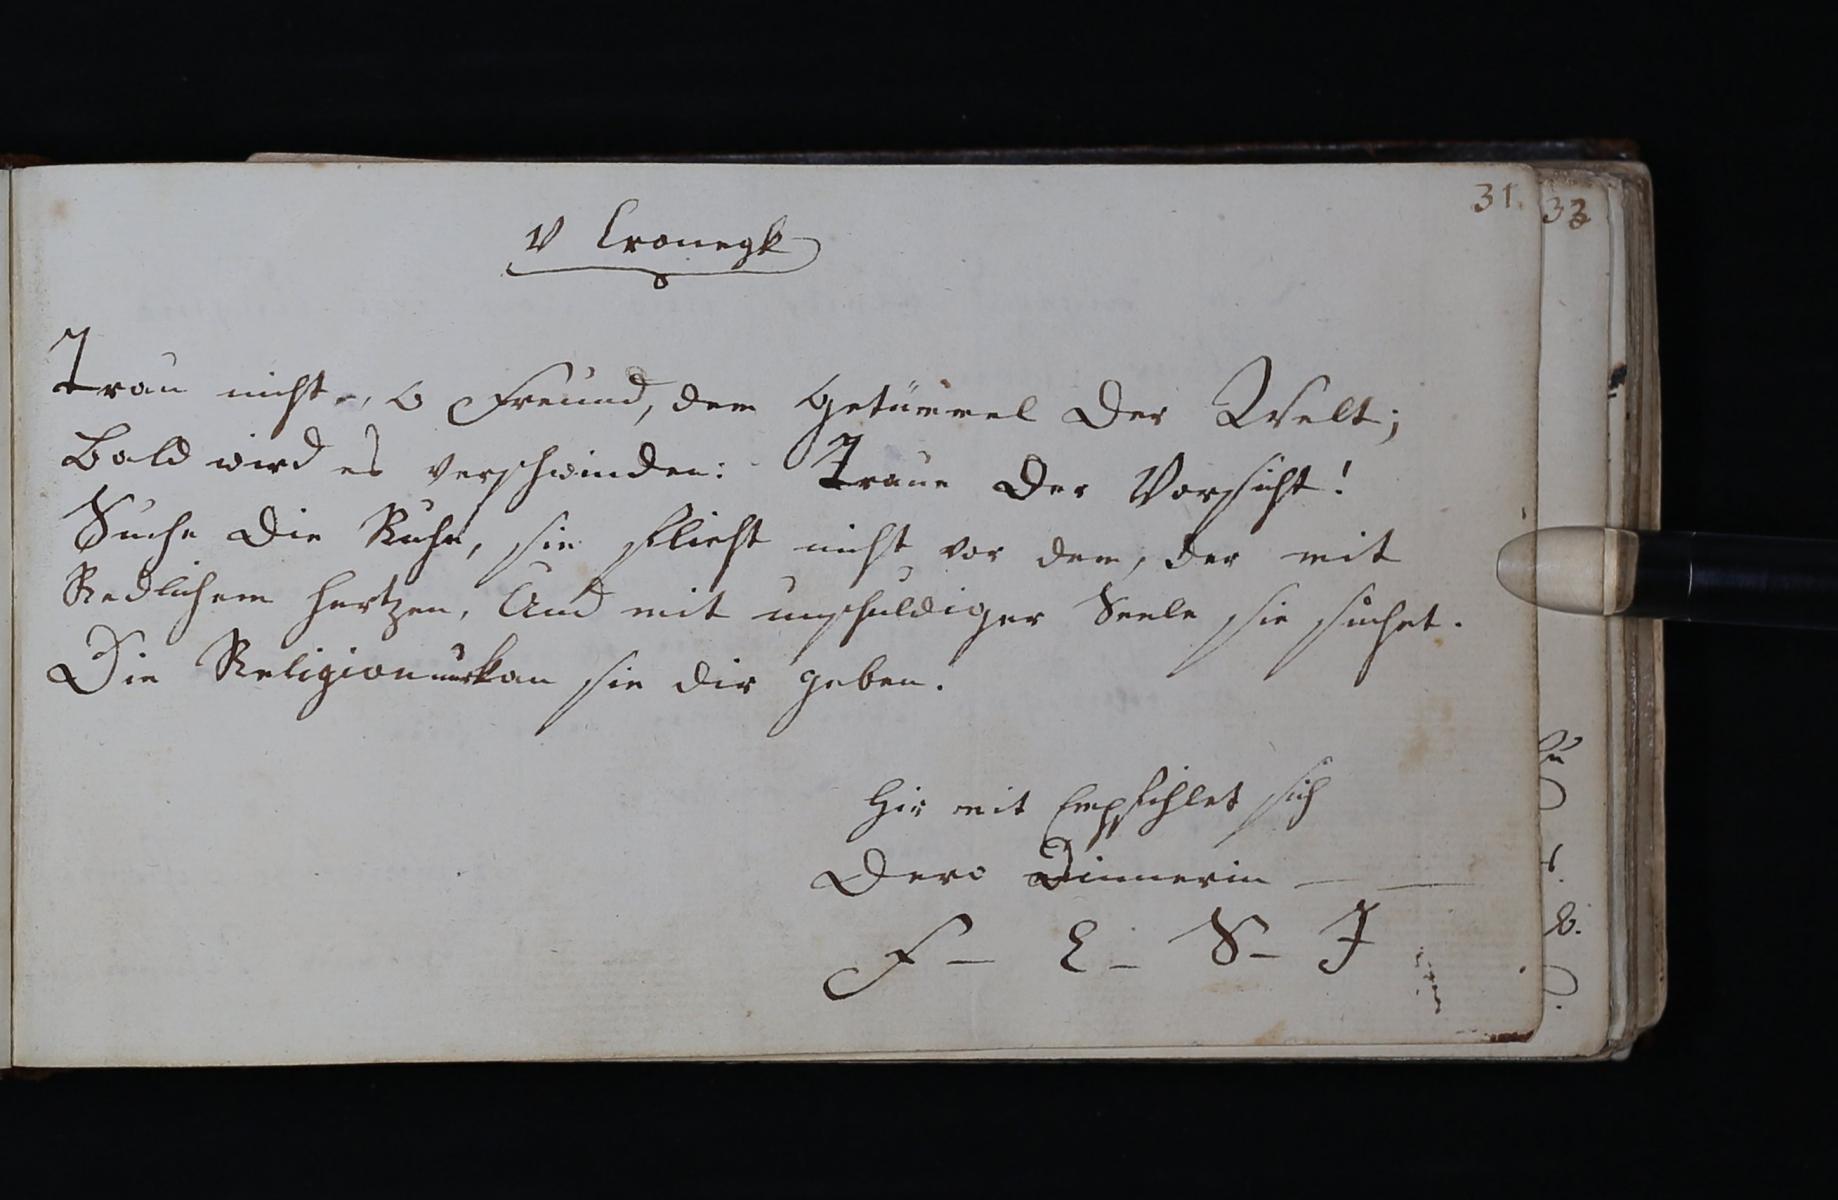 31.
33
v Cronegk
Trau nicht, o Freund, dem Getümmel der Welt;
Bald wird es verschwinden: Traue der Vorsicht!
Suche die Ruhe, sie flieht nicht vor dem, der mit
Redlichem Hertzen, Und mit unschuldiger Seele sie suchet.
Die Religion nur kan sie dir geben.
Hir mit Empfihlet sich
Dero Dinnerin
F – E – S – J